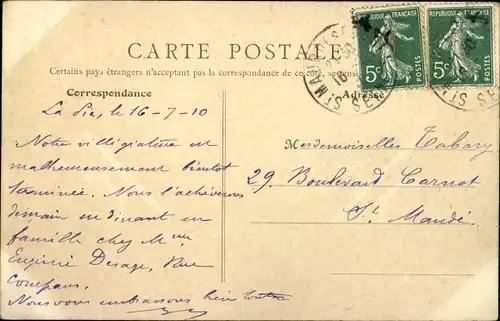 CARTE POSTALE
Certains pays étrangers n'acceptent pas la correspondance de ce côté, se
Correspondance
Adresse
RÉPUBLIQUE FRANÇAISE
5c
POSTES
RÉPUBLIQUE FRANÇAISE
5c
POSTES
ST MAUR
SEINE
Le 16-7-10
Notre villégiature est
malheureusement bientôt
terminée. Nous l'achèverons
demain en dînant en
famille chez Mme
Eugénie Desage, Rue
Compans.
Nous vous embrassons bien toutes
Mesdemoiselles Tabary
29, Boulevard Carnot
St Mandé.